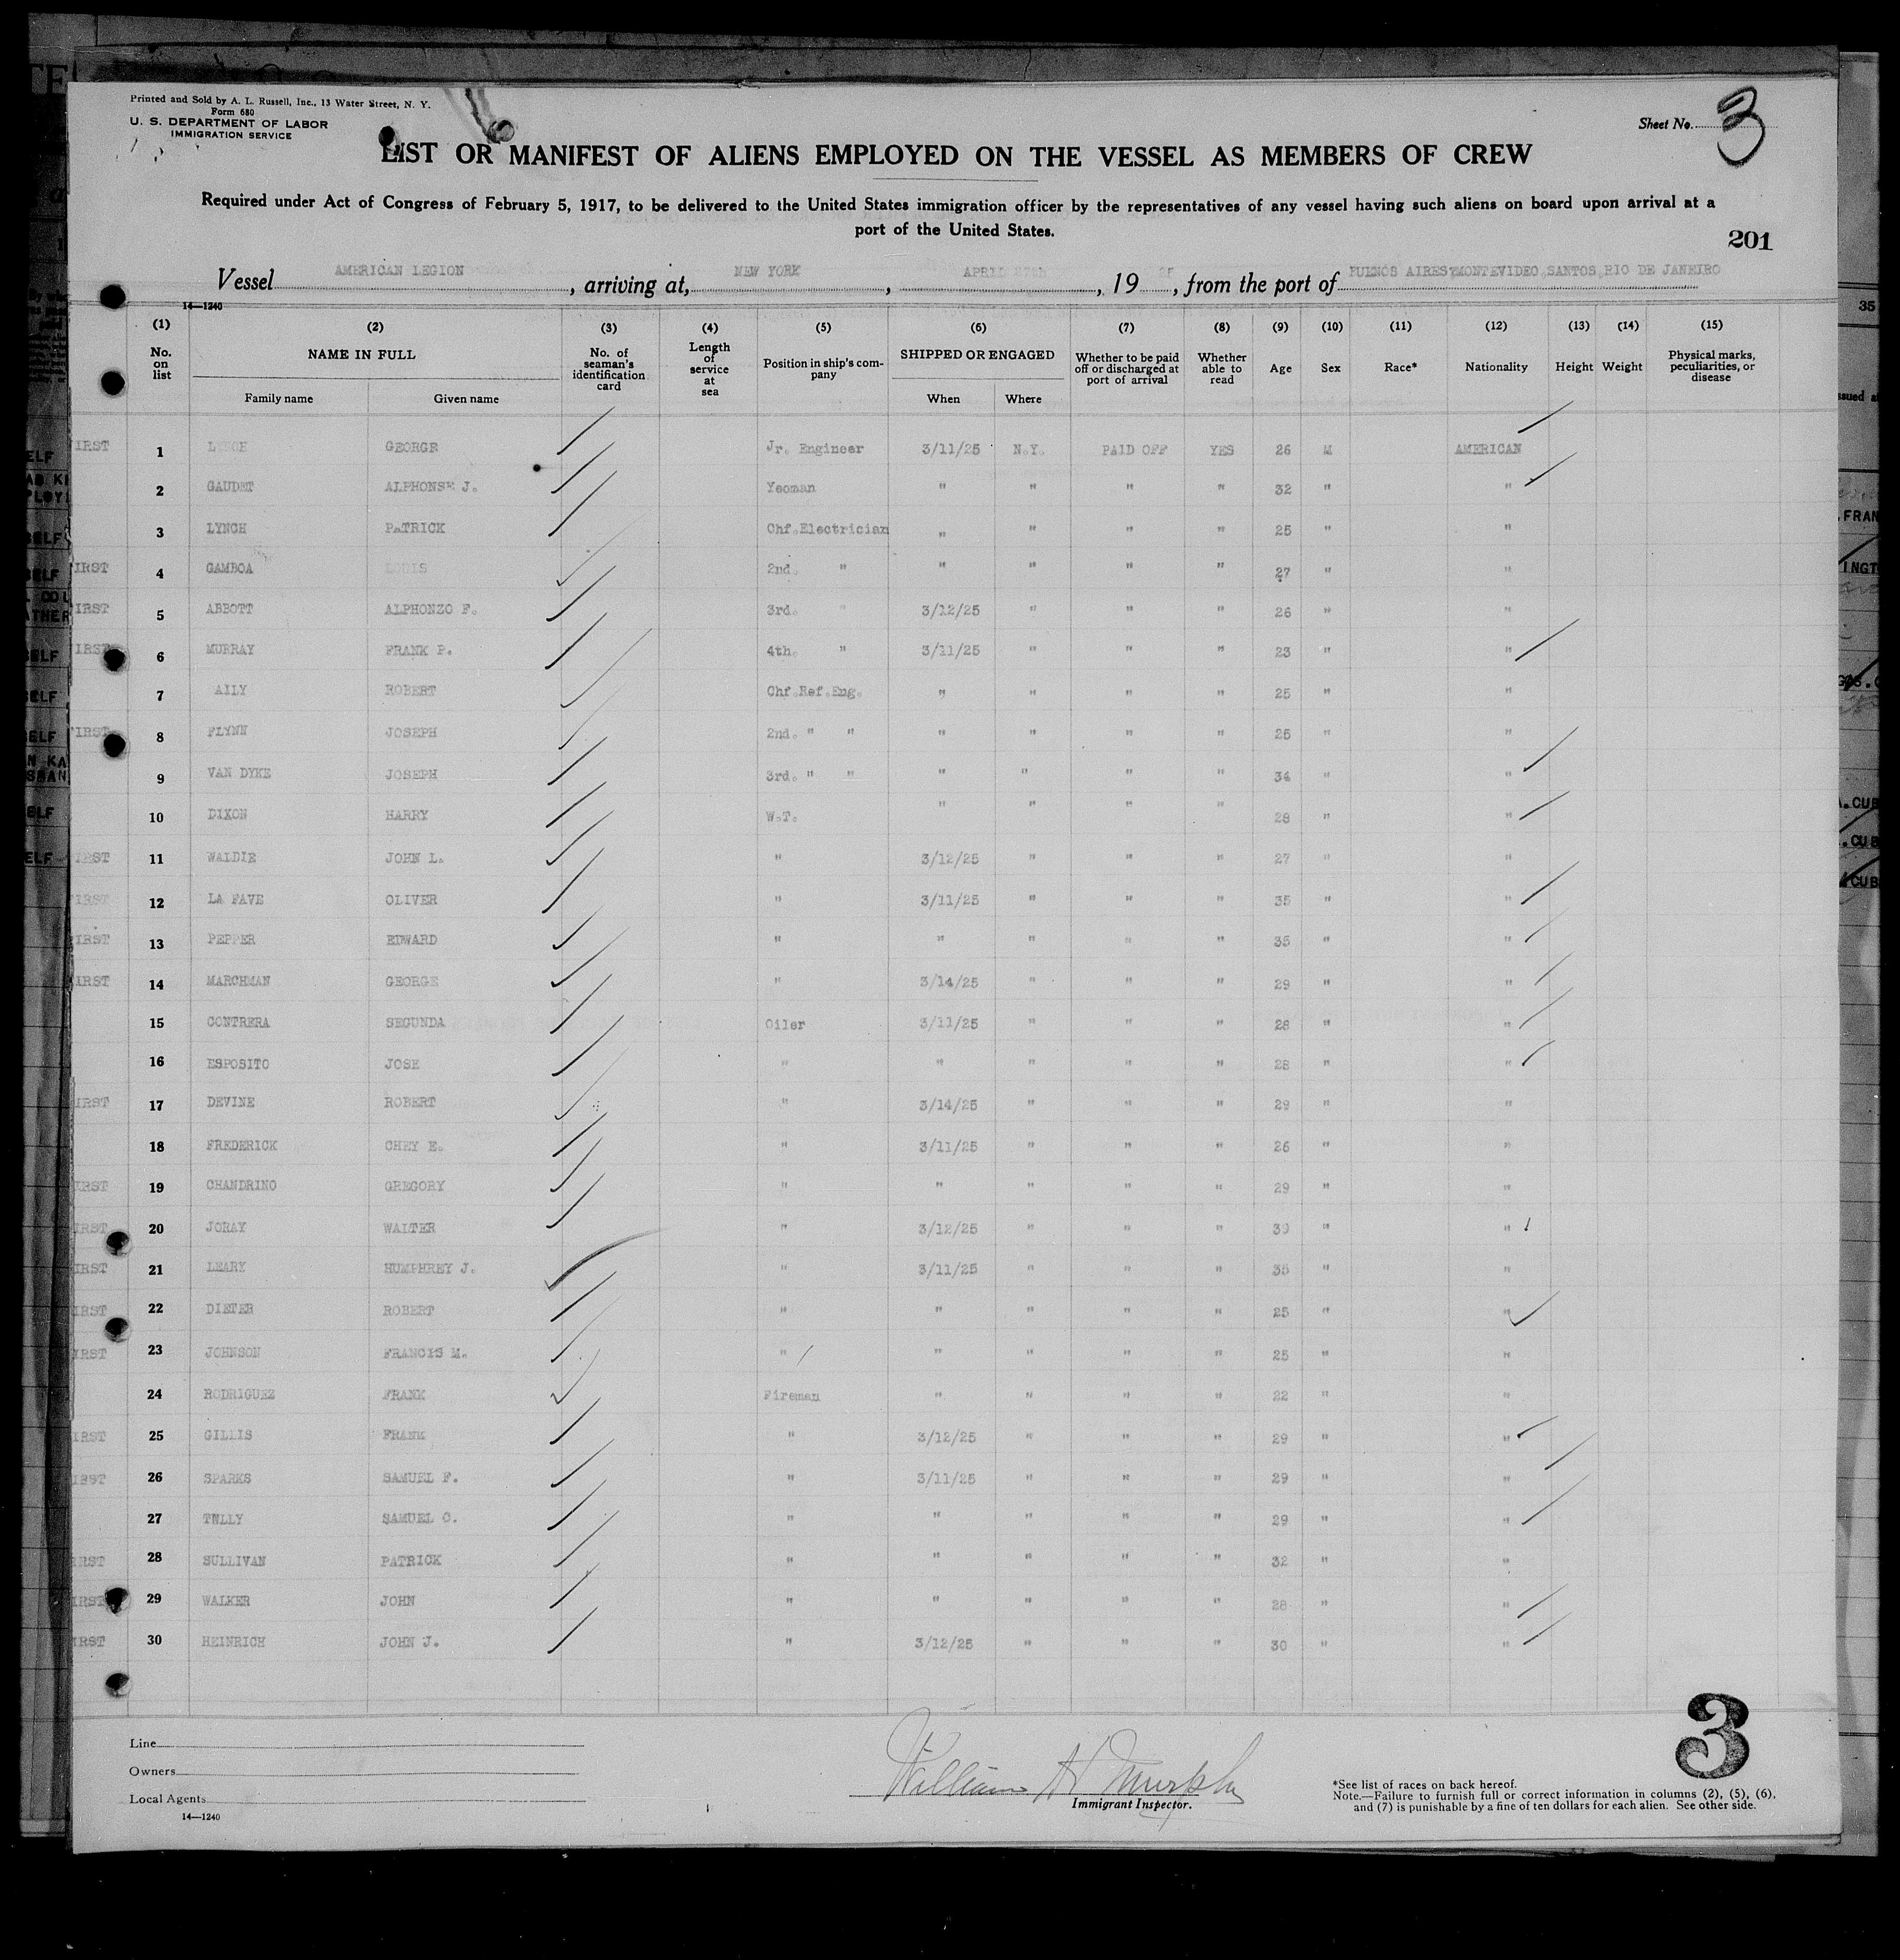 Printed and Sold by A. L. Russell, Inc., 13 Water Street, N. Y.
Form 680
U. S. DEPARTMENT OF LABOR
IMMIGRATION SERVICE
Sheet No. 3
LIST OR MANIFEST OF ALIENS EMPLOYED ON THE VESSEL AS MEMBERS OF CREW
Required under Act of Congress of February 5, 1917, to be delivered to the United States immigration officer by the representatives of any vessel having such aliens on board upon arrival at a
port of the United States.
201
Vessel AMERICAN LEGION, arriving at, NEW YORK, APRIL, 19 25, from the port of BUENOS AIRES MONTEVIDEO, SANTOS, RIO DE JANEIRO
14—1240
(1) (2) (3) (4) (5) (6) (7) (8) (9) (10) (11) (12) (13) (14) (15)
No. on list NAME IN FULL Family name Given name No. of seaman's identification card Length of service at sea Position in ship's company SHIPPED OR ENGAGED When Where Whether to be paid off or discharged at port of arrival Whether able to read Age Sex Race* Nationality Height Weight Physical marks, peculiarities, or disease
IRST 1 LYNCH GEORGE Jr. Engineer 3/11/25 N.Y. PAID OFF YES 26 M AMERICAN
2 GAUDET ALPHONSE J. Yeoman " " " " 32 " "
3 LYNCH PATRICK Chf.Electrician " " " " 25 " "
IRST 4 GAMBOA LOUIS 2nd. " " " " " 27 " "
IRST 5 ABBOTT ALPHONZO F. 3rd. " 3/12/25 " " " 26 " "
IRST 6 MURRAY FRANK P. 4th. " 3/11/25 " " " 23 " "
7 AILY ROBERT Chf.Ref.Eng. " " " " 25 " "
IRST 8 FLYNN JOSEPH 2nd. " " " " " " 25 " "
9 VAN DYKE JOSEPH 3rd. " " " " " " 34 " "
10 DIXON HARRY W.T. " " " " 28 " "
IRST 11 WALDIE JOHN L. " 3/12/25 " " " 27 " "
IRST 12 LA FAVE OLIVER " 3/11/25 " " " 35 " "
IRST 13 PEPPER EDWARD " " " " " 35 " "
IRST 14 MARCHMAN GEORGE " 3/14/25 " " " 29 " "
15 CONTRERA SEGUNDA Oiler 3/11/25 " " " 28 " "
16 ESPOSITO JOSE " " " " " 28 " "
IRST 17 DEVINE ROBERT " 3/14/25 " " " 29 " "
18 FREDERICK CHEY E. " 3/11/25 " " " 26 " "
IRST 19 CHANDRINO GREGORY " " " " " 29 " "
IRST 20 JORAY WALTER " 3/12/25 " " " 39 " "
IRST 21 LEARY HUMPHREY J. " 3/11/25 " " " 35 " "
IRST 22 DIETER ROBERT " " " " " 25 " "
IRST 23 JOHNSON FRANCIS M. " " " " " 25 " "
24 RODRIGUEZ FRANK Fireman " " " " 22 " "
IRST 25 GILLIS FRANK " 3/12/25 " " " 29 " "
IRST 26 SPARKS SAMUEL F. " 3/11/25 " " " 29 " "
27 TULLY SAMUEL C. " " " " " 29 " "
IRST 28 SULLIVAN PATRICK " " " " " 32 " "
IRST 29 WALKER JOHN " " " " " 28 " "
IRST 30 HEINRICH JOHN J. " 3/12/25 " " " 30 " "
Line
Owners
Local Agents
14—1240
William H Murphy
Immigrant Inspector.
3
*See list of races on back hereof.
Note.—Failure to furnish full or correct information in columns (2), (5), (6),
and (7) is punishable by a fine of ten dollars for each alien. See other side.